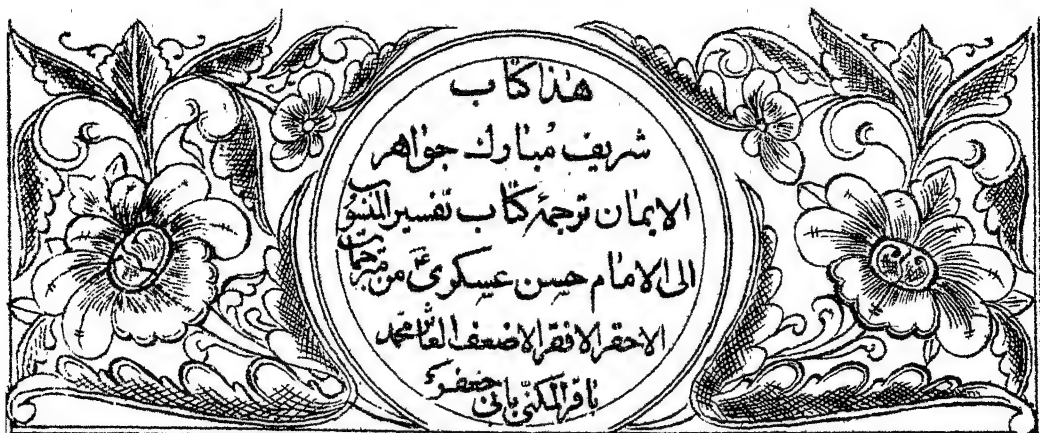 هذا كتاب
شريف مبارك جواهر
الايمان ترجمۀ كتاب تفسير المنسوب
الى الامام حسن عسكرى ع من مترجمات
الاحقر الافقر الاضعف العاثر محمد
باقر المكنى بابى جعفر